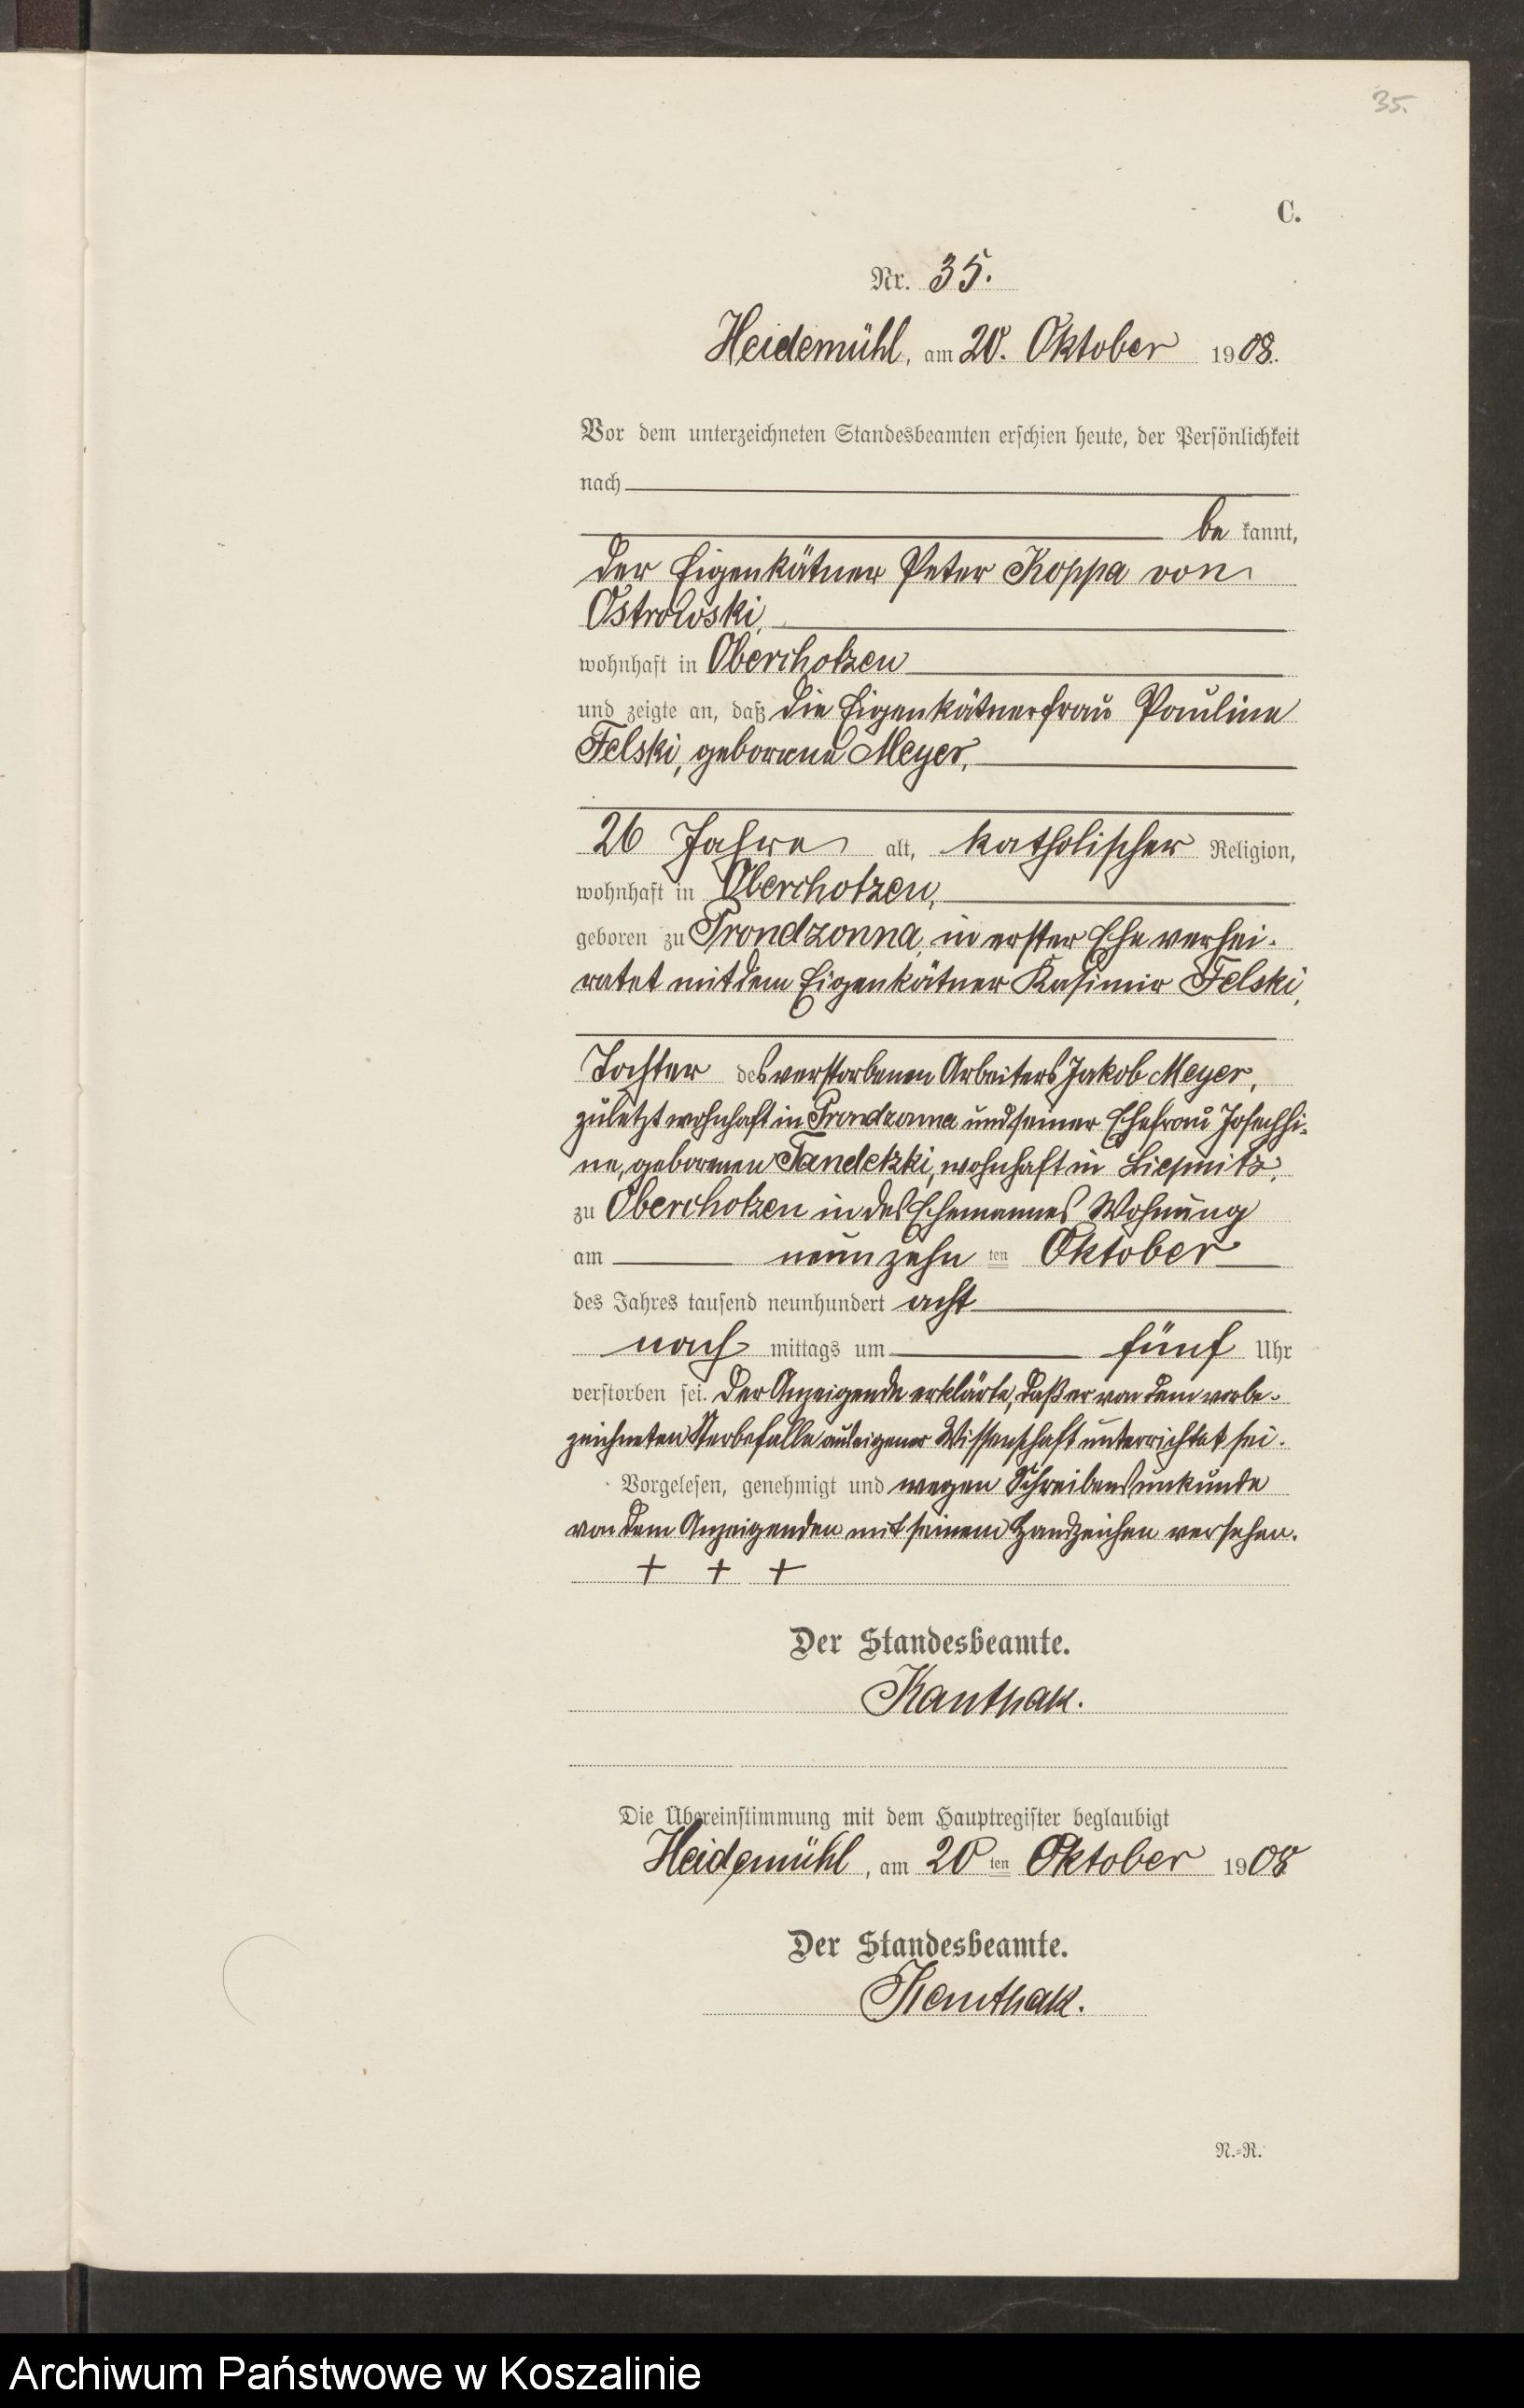 35.
C.
Nr. 35.
Heidemühl, am 20. Oktober 1908.
Vor dem unterzeichneten Standesbeamten erschien heute, der Persönlichkeit
nach
be kannt,
der Eigenkätner Peter Koppa von
Ostrowski,
wohnhaft in Oberchotzen
und zeigte an, daß die Eigenkätnerfrau Pauline
Felski, geborene Meyer,
26 Jahre alt, katholischer Religion,
wohnhaft in Oberchotzen,
geboren zu Prondzonna, in erster Ehe verhei-
ratet mit dem Eigenkätner Kasimir Felski,
Tochter des verstorbenen Arbeiters Jakob Meyer,
zuletzt wohnhaft in Prondzonna und seiner Ehefrau Josephi-
ne, geborenen Tandetzki, wohnhaft in Liepnitz,
zu Oberchotzen in des Ehemannes Wohnung
am neunzehn ten Oktober
des Jahres tausend neunhundert acht
nach mittags um fünf Uhr
verstorben sei. Der Anzeigende erklärte, daß er von dem vorbe-
zeichneten Sterbefalle aus eigener Wissenschaft unterrichtet sei.
Vorgelesen, genehmigt und wegen Schreibensunkunde
von dem Anzeigenden mit seinem Handzeichen versehen.
+ + +
Der Standesbeamte.
Kanthak.
Die Übereinstimmung mit dem Hauptregister beglaubigt
Heidemühl, am 20 ten Oktober 1908
Der Standesbeamte.
Kanthak.
N.-R.
Archiwum Państwowe w Koszalinie